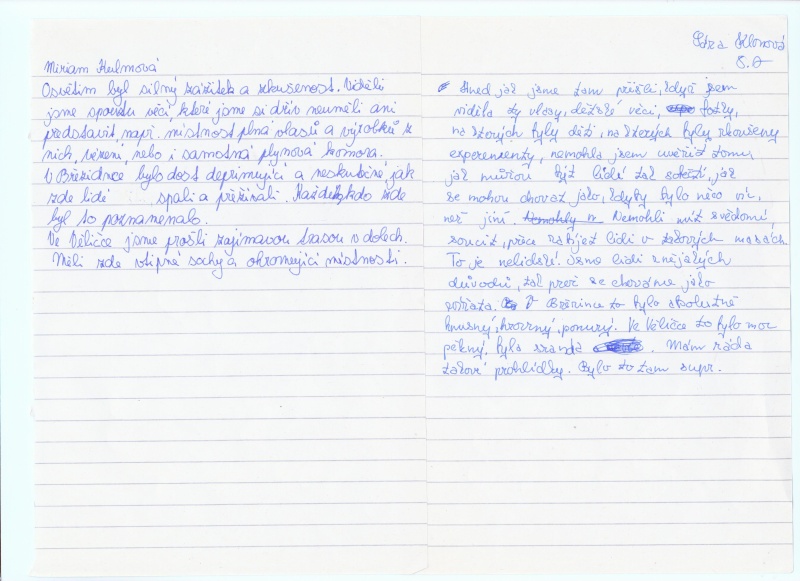 Miriam Kulmová
Osvětim byl silný zážitek a zkušenost. Viděli
jsme spoustu věcí které jsme si dřív neuměli ani
představit, např. místnost plná vlasů a výrobků z
nich, vězení, nebo i samotná plynová komora.
V Březince bylo dost deprimující a neskutečné jak
zde lidé spali a přežívali. Každého kdo zde
byl to poznamenalo.
Ve Věličce jsme prošli zajímavou trasou v dolech.
Měli zde vtipné sochy a ohromující místnosti.
Klonová
8.A
Hned jak jsme tam přišli, když jsem
viděla ty vlasy, dětské věci, fotky,
na kterých byly děti, na kterých byly zkoušeny
experimenty, nemohla jsem uvěřit tomu,
jak můžou být lidé tak, jak
se mohou chovat jako, kdyby bylo něco víc,
než jiní. Nemohli mít svědomí,
soucit, přece zabíjet lidi v takových masách
To je nelidské. Jsme lidi z nějakých
důvodů, tak proč se chováme jako
zvířata. V Březince to bylo absolutně
hnusný, krvavý, ponurý. Ve Věličce to bylo moc
pěkný, byla sranda. Mám ráda
takové prohlídky. Bylo to tam supr.